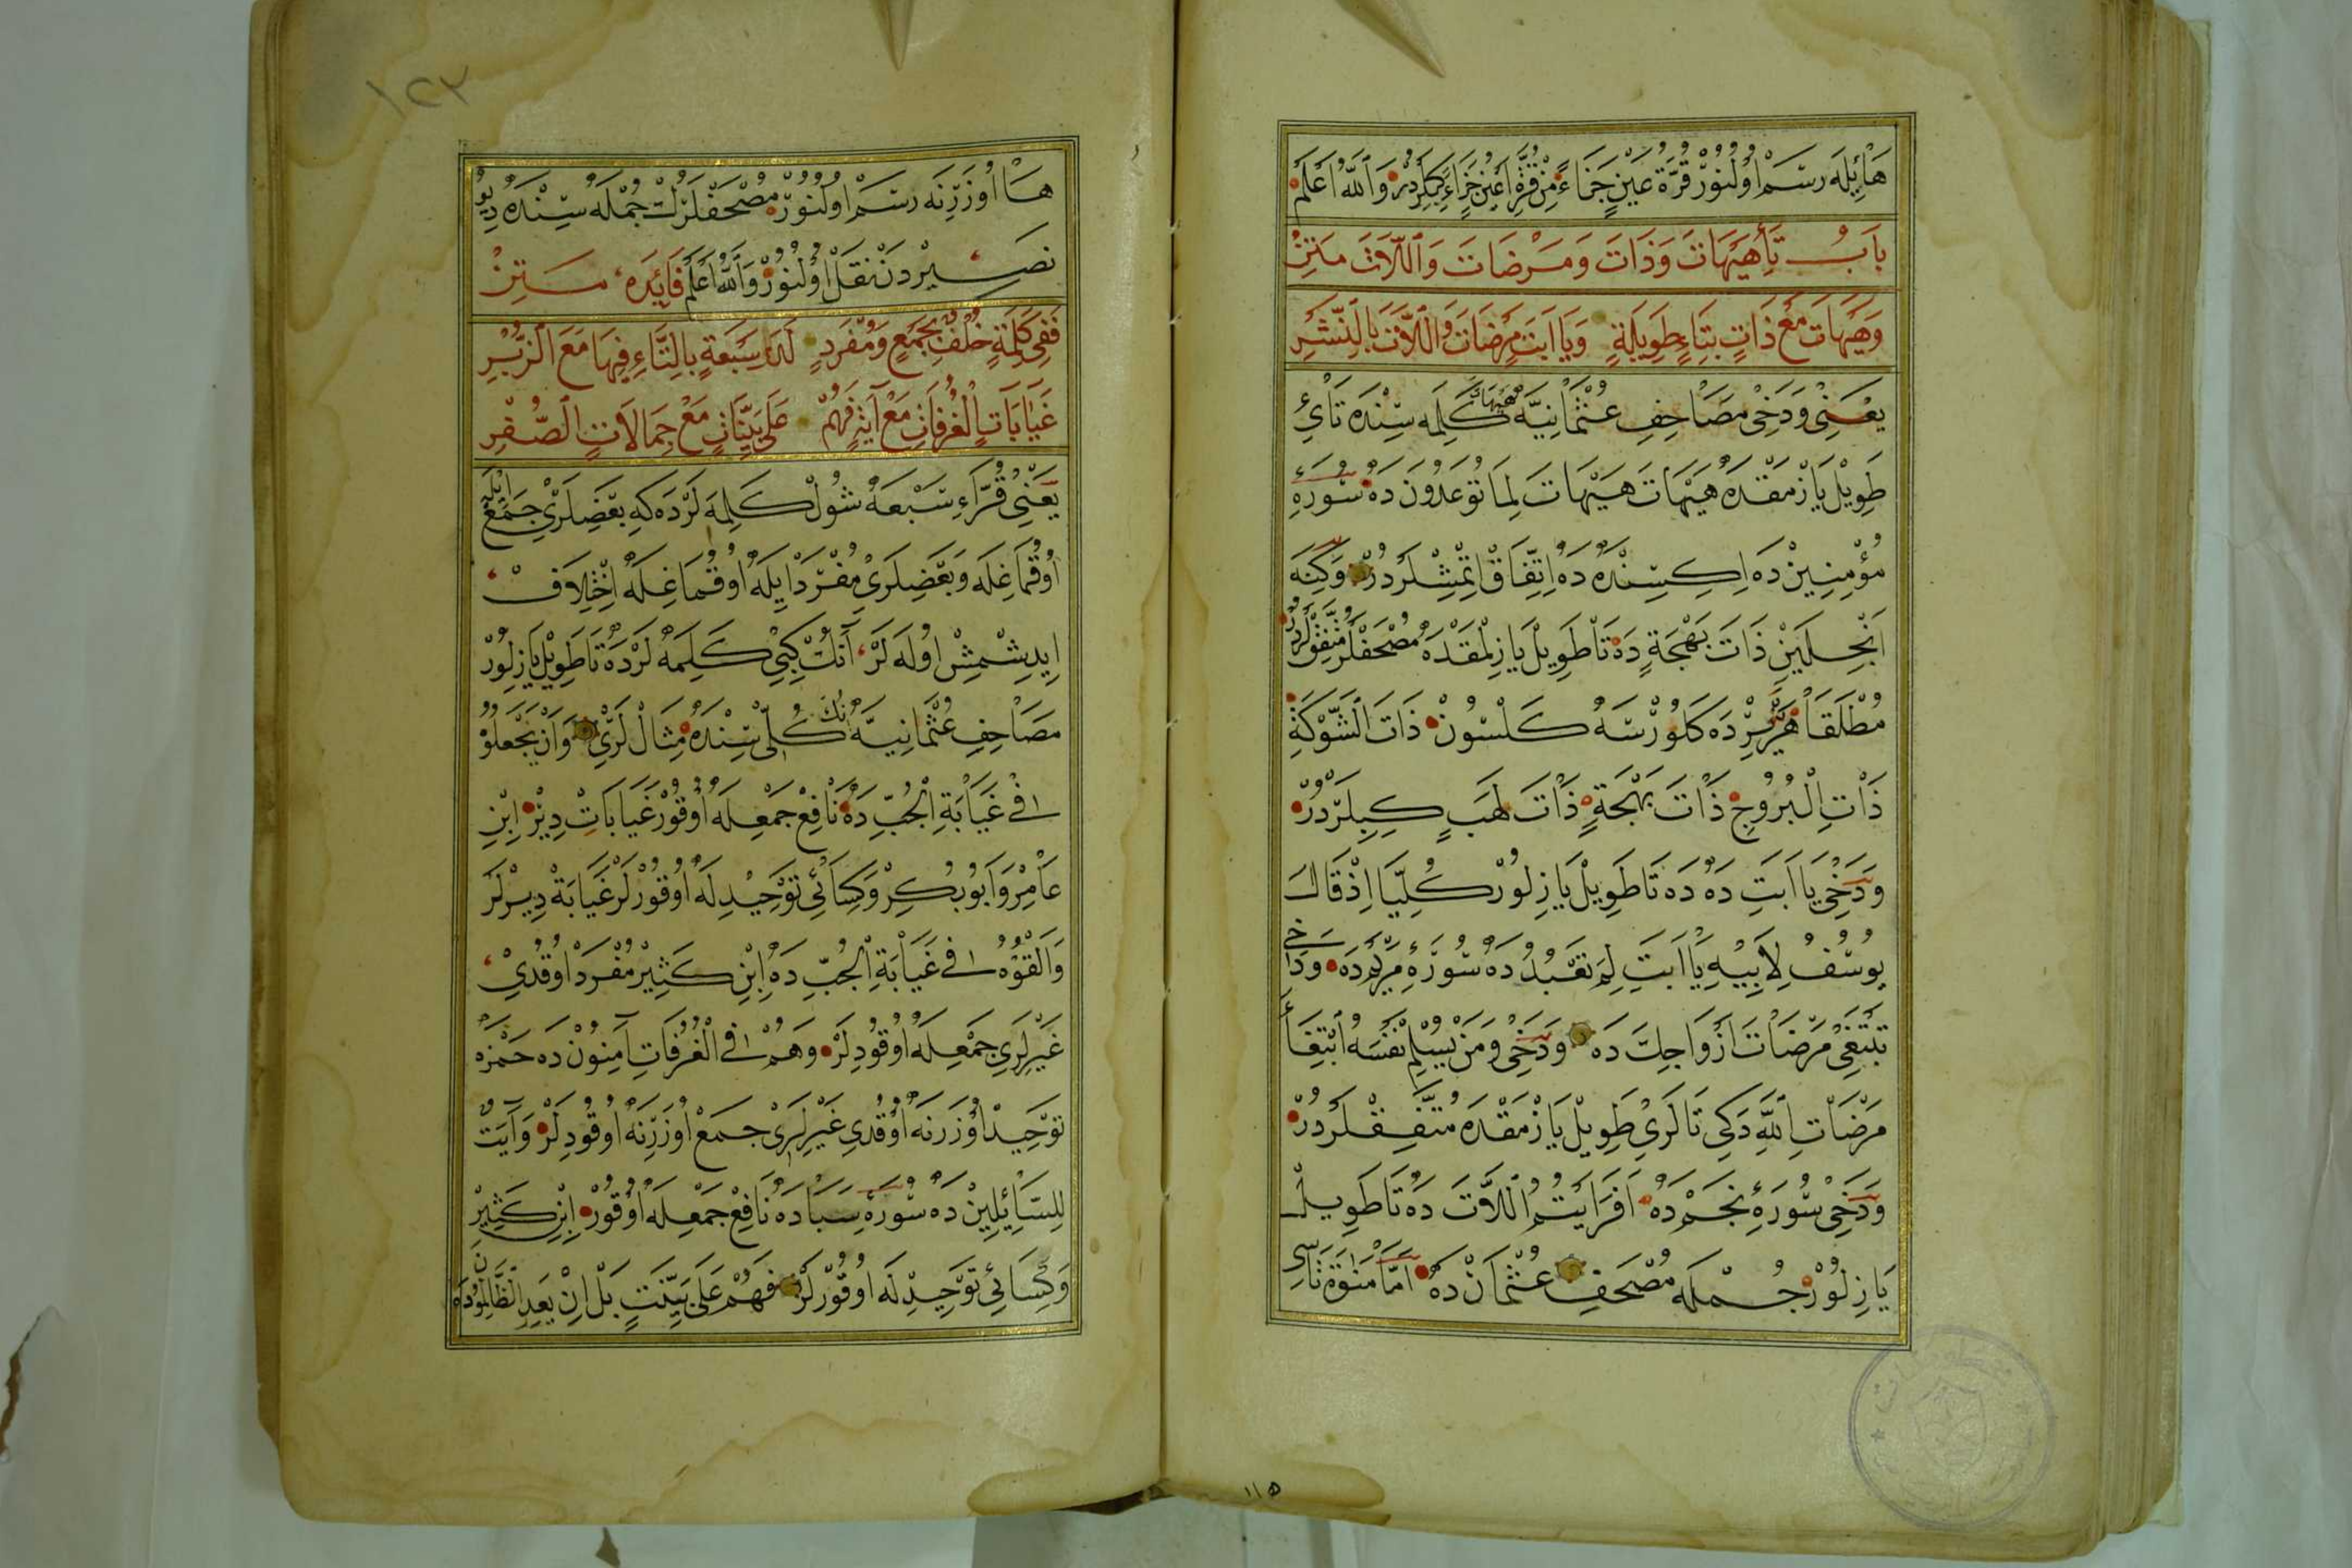 هَا ئِيلَه رَسْم اُولُنُورْ قُرَّةُ عَيْنٍ جَزَاءً مِنْ قُرَّةِ اَعْيُنٍ جَزَاءً كِبِلَرْدُرْ وَاللّٰهُ اَعْلَمْ
بَابُ تَاءِ هَيْهَاتَ وَذَاتَ وَمَرْضَاتَ وَاللَّاتَ مَتِنْ
وَهَيْهَاتَ مَعْ ذَاتٍ بِتَاءٍ طَوِيلَةٍ وَيَا اَبَتِ مَرْضَاتَ وَاللَّاتَ بِالنَّشْرِ
يَعْنِى وَدَخِى مَصَاحِفِ عُثْمَانِيَّه هَيْهَاتَ كَلِمَه سِنْدَه تَائِ
طَوِيلْ يَازْمَقْدَه هَيْهَاتَ هَيْهَاتَ لِمَا تُوعَدُونَ دَه سُورَهِٔ
مُؤْمِنِينْ دَه اِكِسِنْدَه دَه اِتِّفَاقْ اِتْمِشْلَرْدُرْ وَكِنَه
اَنْجِلَيِنْ ذَاتَ بَهْجَةٍ دَه تَا طَوِيلْ يَازِلْمَقْدَه مُصْحَفْلَرْ مُتَّفِقْلَرْدُرْ
مُطْلَقَا هَرْ يَرْدَه كَلُورْسَه كَلْسُونْ ذَاتَ الشَّوْكَةِ
ذَاتِ الْبُرُوجِ ذَاتَ بَهْجَةٍ ذَاتَ لَهَبٍ كِبِلَرْدُرْ
وَدَخِى يَا اَبَتِ دَه دَه تَا طَوِيلْ يَازِلُورْ كُلِّيًّا اِذْ قَالَ
يُوسُفُ لِاَبِيهِ يَا اَبَتِ لِمَ تَعْبُدُ دَه سُورَهِٔ مَرْيَمْدَه وَدَخِى
تَبْتَغِى مَرْضَاتَ اَزْوَاجِكَ دَه وَدَخِى وَمَنْ يُسْلِمْ نَفْسَهُ ابْتِغَاءَ
مَرْضَاتِ اللّٰهِ دَكِى تَالَرِى طَوِيلْ يَازْمَقْدَه مُتَّفِقْلَرْدُرْ
وَدَخِى سُورَهِٔ نَجْمْ دَه اَفَرَاَيْتُمُ اللَّاتَ دَه تَا طَوِيلْ
يَازِلُورْ جُمْلَه مُصْحَفِ عُثْمَانْ دَه اَمَّا مَنٰوةَ تَاسِى
١١٥
١٢٣
هَا اُوزَرِنَه رَسْم اُولُنُورْ مُصْحَفْلَرُكْ جُمْلَه سِنْدَه دِيُو
نَصِيرْدَنْ نَقْلْ اُولُنُورْ وَاللّٰهُ اَعْلَمْ فَائِدَه مَتِنْ
فَفِى كَلِمَةٍ خُلْفٌ بِجَمْعٍ وَمُفْرَدٍ لَدَى سَبْعَةٍ بِالتَّاءِ فِيهَا مَعَ الزُّبْرِ
غَيَابَاتِ الْغُرُفَاتِ مَعْ آيَةٍ فَهُمْ عَلَى بَيِّنَاتٍ مَعْ جِمَالَاتٍ الصُّفْرِ
يَعْنِى قُرَّاءِ سَبْعَه شُولْ كَلِمَه لَرْدَه كِه بَعْضِلَرِى جَمْعْ اِيلَه
اُوقُمَاغِلَه وَبَعْضِلَرِى مُفْرَدْ اِيلَه اُوقُمَاغِلَه اِخْتِلَافْ
اِيدِشْمِشْ اُولَه لَرْ آنُكْ كِبِى كَلِمَه لَرْدَه تَا طَوِيلْ يَازِلُورْ
مَصَاحِفِ عُثْمَانِيَّه نُكْ كُلِّسِنْدَه مِثَالْ لَرِى وَاَنْ يَجْعَلُوهُ
فِى غَيَابَةِ الْجُبِّ دَه نَافِعْ جَمْعِلَه اُوقُورْ غَيَابَاتْ دِيرْ اِبْنِ
عَامِرْ وَابُو بُكِرْ وَكِسَائِى تَوْحِيدِلَه اُوقُورْلَرْ غَيَابَةْ دِيرْلَرْ
وَالْقُوهُ فِى غَيَابَةِ الْجُبِّ دَه اِبْنِ كَثِيرْ مُفْرَدْ اُوقُدِى
غَيْرِلَرِى جَمْعِلَه اُوقُودِلَرْ وَهُمْ فِى الْغُرُفَاتِ آمِنُونْ دَه حَمْزَه
تَوْحِيدْ اُوزَرِنَه اُوقُدِى غَيْرِلَرِى جَمْعْ اُوزَرِنَه اُوقُودِلَرْ وَآيَتْ
لِلسَّائِلِينْ دَه سُورَهِٔ سَبَادَه نَافِعْ جَمْعِلَه اُوقُورْ اِبْنِ كَثِيرْ
وَكِسَائِى تَوْحِيدِلَه اُوقُورْلَرْ فَهُمْ عَلَى بَيِّنَتٍ بَلْ اِنْ يَعِدُ الظَّالِمُونَ دَه